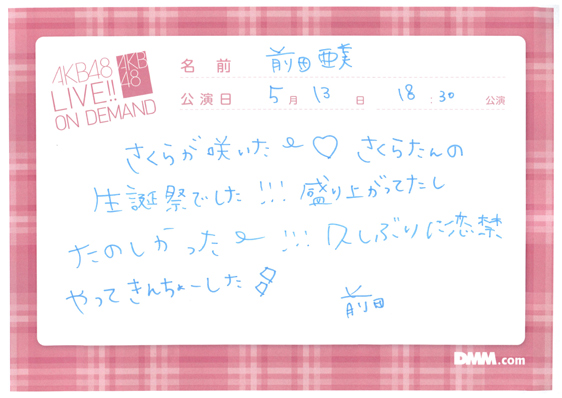 AKB48
LIVE!!
ON DEMAND
AKB
48
名前 前田亜美
公演日 5月13日 18:30公演
さくらが咲いた〜♡ さくらたんの
生誕祭でした!!! 盛り上がってたし
たのしかった〜!!! 久しぶりに恋禁
やってきんちょーした
前田
DMM.com